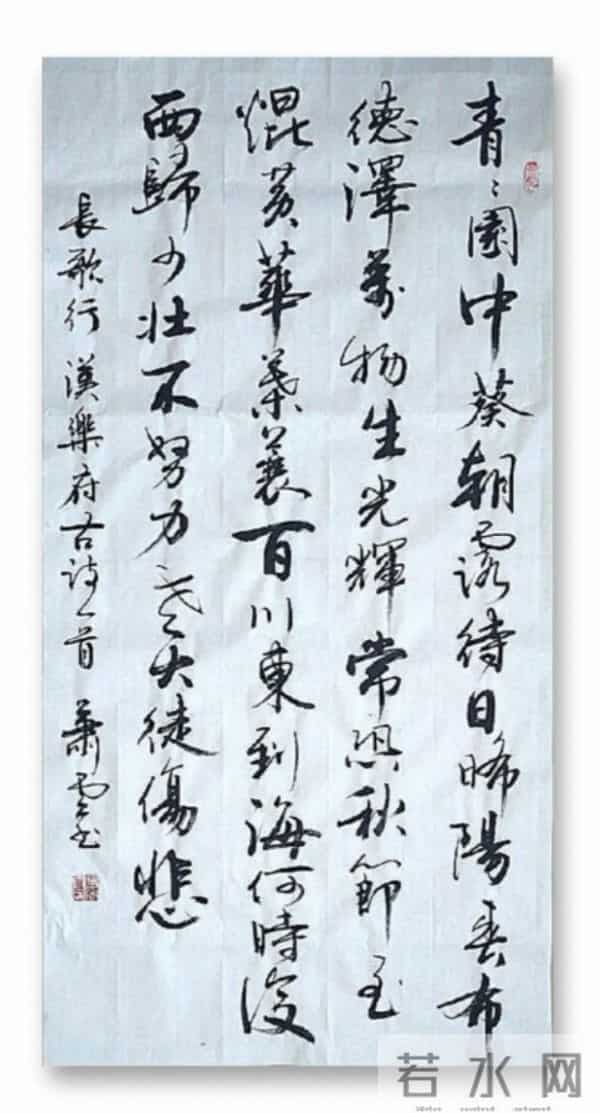 青〻園中葵朝露待日晞陽春布
德澤萬物生光輝常恐秋節至
焜黃華葉蓑百川東到海何時復
西歸少壯不努力老大徒傷悲
長歌行 漢樂府古詩一首 蕭雲書
若水网